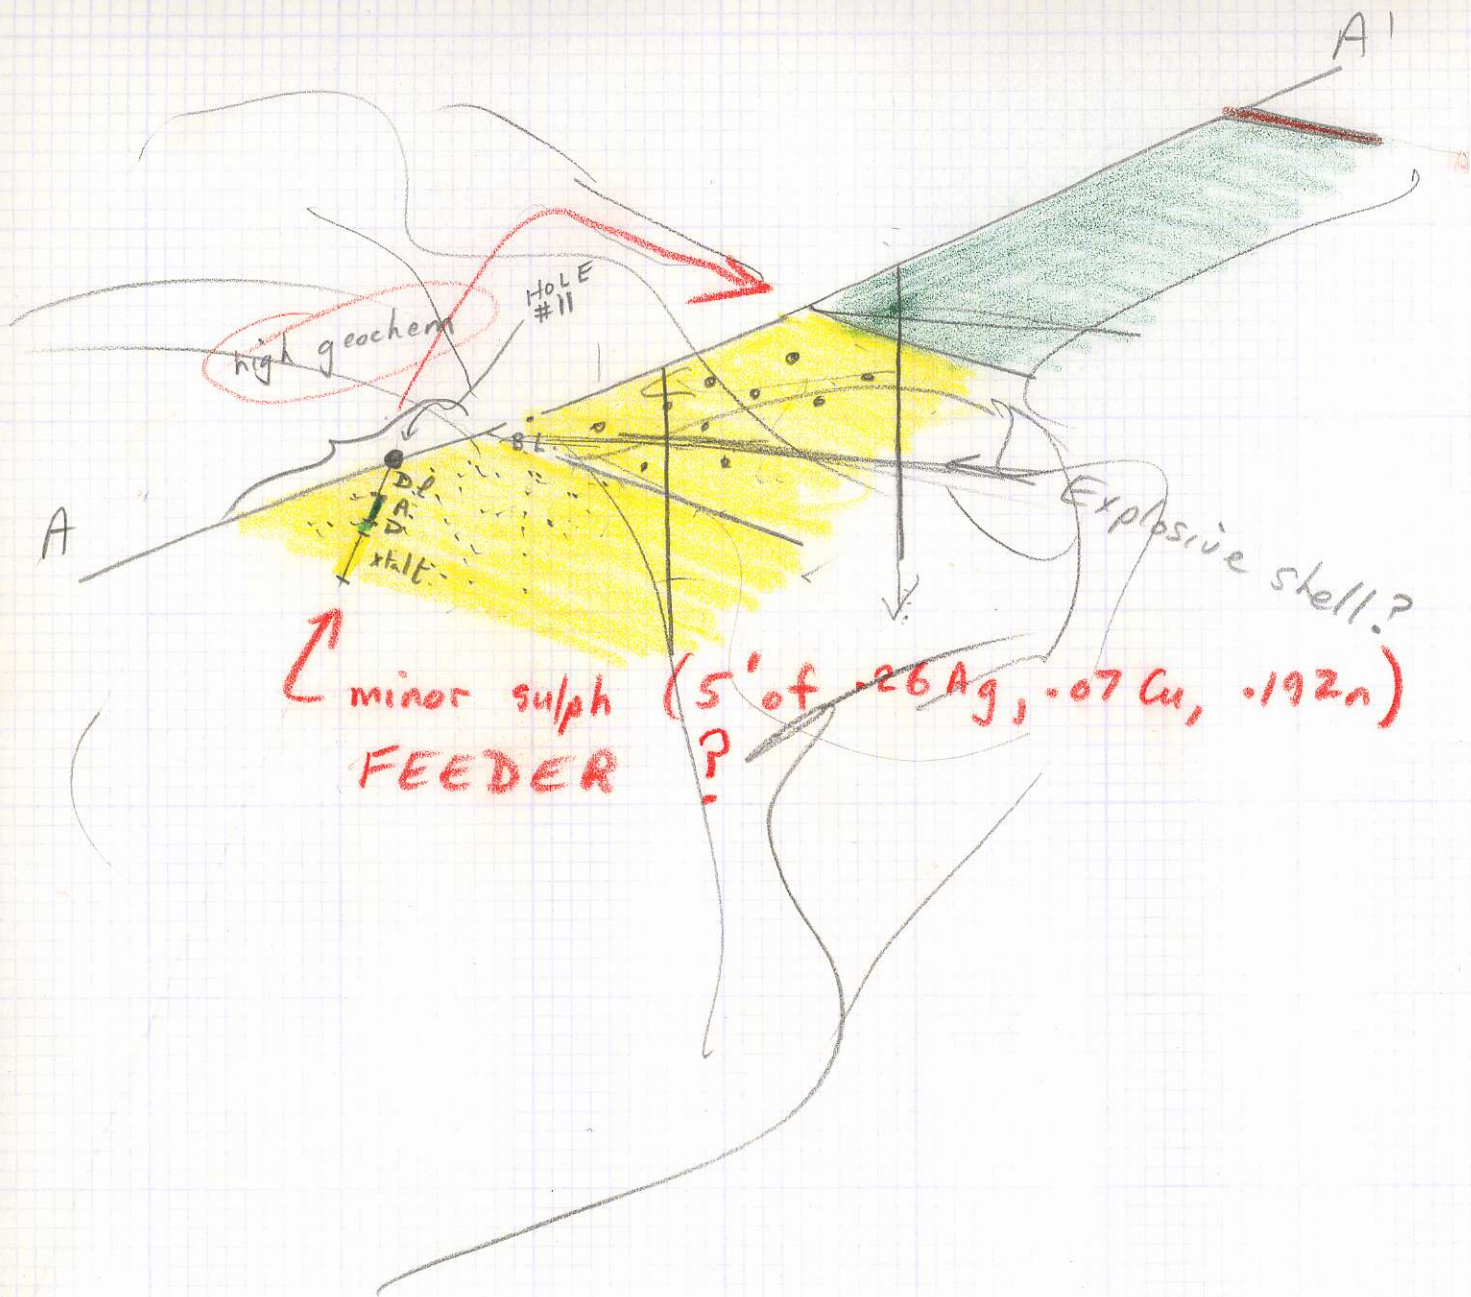 A'
HOLE
#11
high geochem
B L.
A
A.
D.
xtalt.
Explosive shell?
minor sulph (5' of .26 Ag, .07 Cu, .19Zn)
FEEDER ?